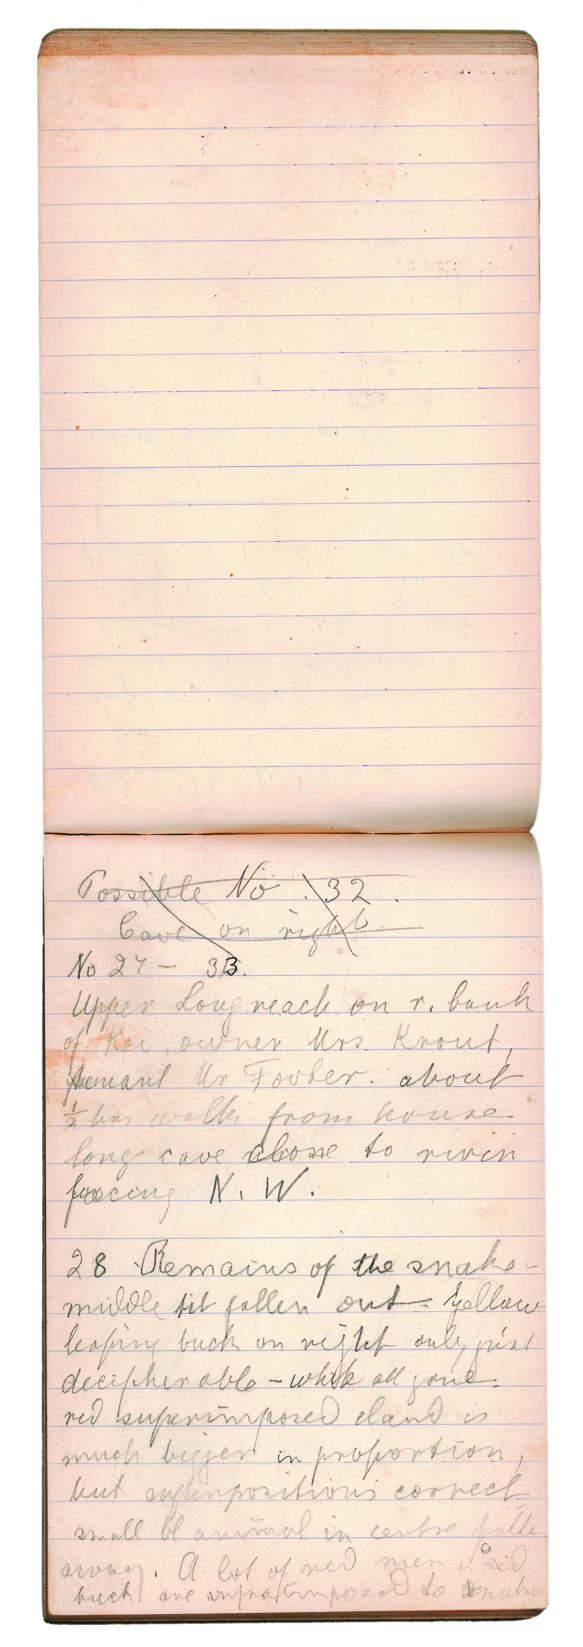 Possible No. 32.
Cave on right
No 27 - 33.
Upper Longreach on r. bank
of Kei, owner Mrs. Krout,
servant Mr Forber. about
½ hrs walk from house
long cave close to rivir
facing N. W.
28 Remains of the snake -
middle bit fallen out = Yellow
leaping buck on right only just
decipherable - white all gone.
red superimposed eland is
much bigger in proportion,
but superpositions correct
small bl animal in centre falle
away. A lot of red men & red
buck are infraimposed to snake